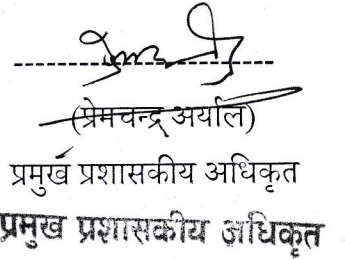 (प्रेमचन्द्र अर्याल)
प्रमुख प्रशासकीय अधिकृत
प्रमुख प्रशासकीय अधिकृत